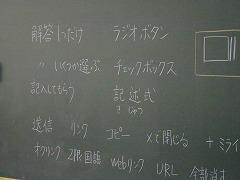 解答1つだけ ラジオボタン
〃 いくつか選ぶ チェックボックス
記入してもらう 記述式
きじゅつ
送信 リンク コピー ×で閉じる +ミライ
オクリンク 2限国語 Webリンク URL 全部消す